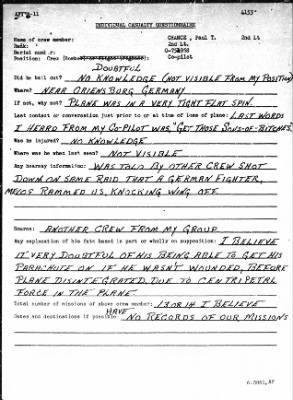 INDIVIDUAL CASUALTY QUESTIONNAIRE
Name of crew member: CHANCE, Paul T. 2nd Lt
Rank: 2nd Lt.
Serial number:
Position: Crew Co-pilot
DOUBTFUL
Did he bail out? NO KNOWLEDGE (NOT VISIBLE FROM MY POSITION)
Where? NEAR ORIENSBURG GERMANY
If not, why not? PLANE WAS IN A VERY TIGHT FLAT SPIN.
Last contact or conversation just prior to or at time of loss of plane: LAST WORDS
I HEARD FROM MY CO-PILOT WAS, "GET THOSE SONS-OF-BITCHES."
Was he injured? NO KNOWLEDGE
Where was he when last seen? NOT VISIBLE
Any hearsay information: WAS TOLD BY OTHER CREW SHOT
DOWN ON SAME RAID THAT A GERMAN FIGHTER,
ME109 RAMMED US, KNOCKING WING OFF.
Source: ANOTHER CREW FROM MY GROUP
Any explanation of his fate based in part or wholly on supposition: I BELIEVE
IT VERY DOUBTFUL OF HIS BEING ABLE TO GET HIS
PARACHUTE ON IF HE WASN'T WOUNDED, BEFORE
PLANE DISINTEGRATED, DUE TO CENTRIPETAL
FORCE IN THE PLANE.
Total number of missions of above crew member: 13 OR 14 I BELIEVE
HAVE
Dates and destinations if possible: NO RECORDS OF OUR MISSIONS